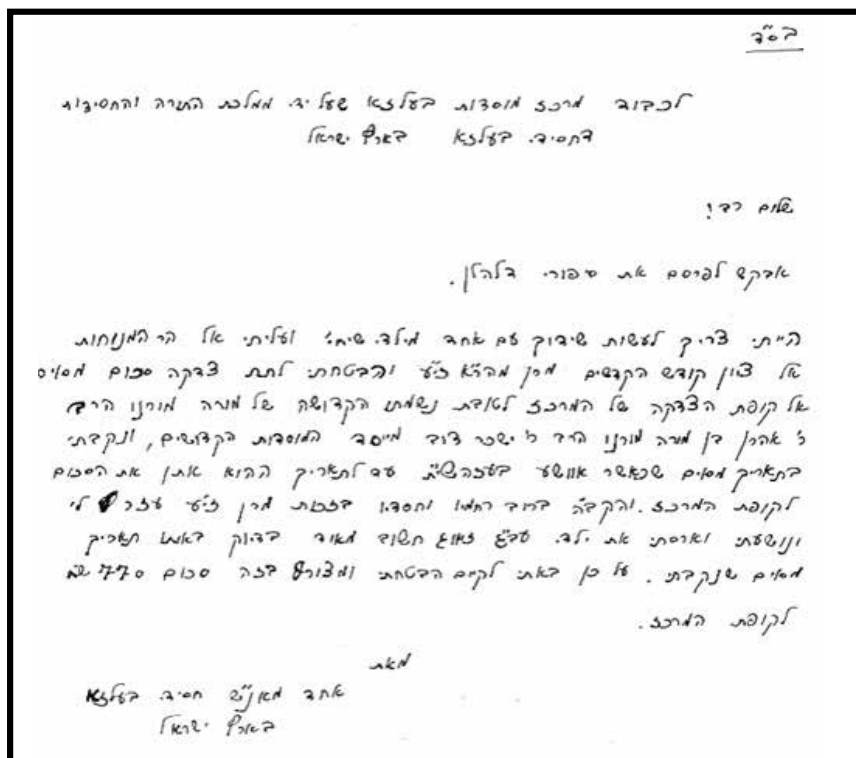 בס"ד
לכבוד מרכז מוסדות בעלזא שעל יד ממלכת התורה והחסידות
דחסידי בעלזא בארץ ישראל
שלום רב!
אבקש לפרסם את סיפורי דלהלן.
הייתי צריך לעשות שידוך עם אחד מילדי שיחי' ועליתי אל הר המנוחות
אל ציון קודש הקדשים מרן מהר"א זי"ע והבטחתי לתת צדקה סכום מסוים
אל קופת הצדקה של המרכז לטובת נשמתו הקדושה של מורה מורנו הרב
ר' אהרן בן מורה מורנו הרב ר' ישכר דוב מייסד המוסדות הקדושים, ונקבתי
בתאריך מסוים שכאשר אוושע בעזהשי"ת עד לתאריך ההוא אתן את הסכום
לקופת המרכז. והקב"ה ברוב רחמיו וחסדיו בזכות מרן זי"ע עזר לי
ונושעתי וארסתי את ילדי עב"ג זיווג חשוב מאוד בדיוק באותו תאריך
מסוים שנקבתי. על כן באתי לקיים הבטחתי ומצורף בזה סכום 770
לקופת המרכז.
מאת
אחד מאנ"ש חסידי בעלזא
בארץ ישראל